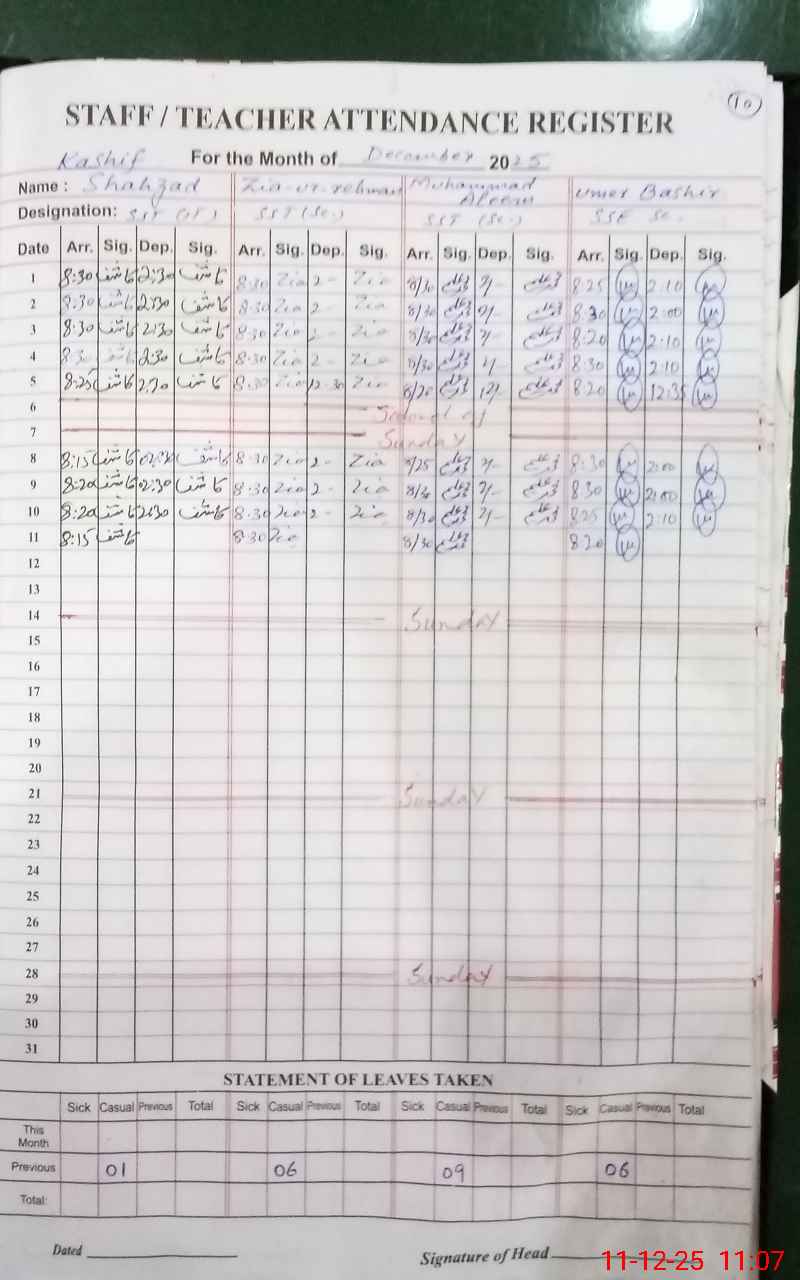 10
STAFF / TEACHER ATTENDANCE REGISTER
For the Month of December 2025
Name : Kashif Shahzad Zia-ur-rehman Muhammad Aleem Umer Bashir
Designation: SST (IT) SST (Sc.) SST (Sc.) SSE Sc.
Date Arr. Sig. Dep. Sig. Arr. Sig. Dep. Sig. Arr. Sig. Dep. Sig. Arr. Sig. Dep. Sig.
1 8:30 کاشف 2:30 کاشف 8:30 Zia 2- Zia 8/30 2/- 8:25 2:10
2 8:30 کاشف 2:30 کاشف 8:30 Zia 2- Zia 8/30 2/- 8:30 2:00
3 8:30 کاشف 2:30 کاشف 8:30 Zia 2- Zia 8/30 2/- 8:20 2:10
4 کاشف 2:30 کاشف 8:30 Zia 2- Zia 8/30 8:30 2:10
5 8:25 کاشف کاشف 8:30 Zia 12-30 Zia 8/20 12/- 8:20 12:35
6
7 Sunday
8 8:15 کاشف 02:30 کاشف 8:30 Zia 2- Zia 8/25 2/- 8:30 2:00
9 8:20 کاشف 02:30 کاشف 8:30 Zia 2- Zia 8/30 2/- 8:30 2:00
10 8:20 کاشف 2:30 کاشف 8:30 Zia 2- Zia 8/30 2/- 8:25 2:10
11 8:15 کاشف 8:30 Zia 8/30 8:20
12
13
14 Sunday
15
16
17
18
19
20
21 Sunday
22
23
24
25
26
27
28 Sunday
29
30
31
STATEMENT OF LEAVES TAKEN
Sick Casual Previous Total Sick Casual Previous Total Sick Casual Previous Total Sick Casual Previous Total
This Month
Previous 01 06 09 06
Total:
Dated
Signature of Head
11-12-25 11:07